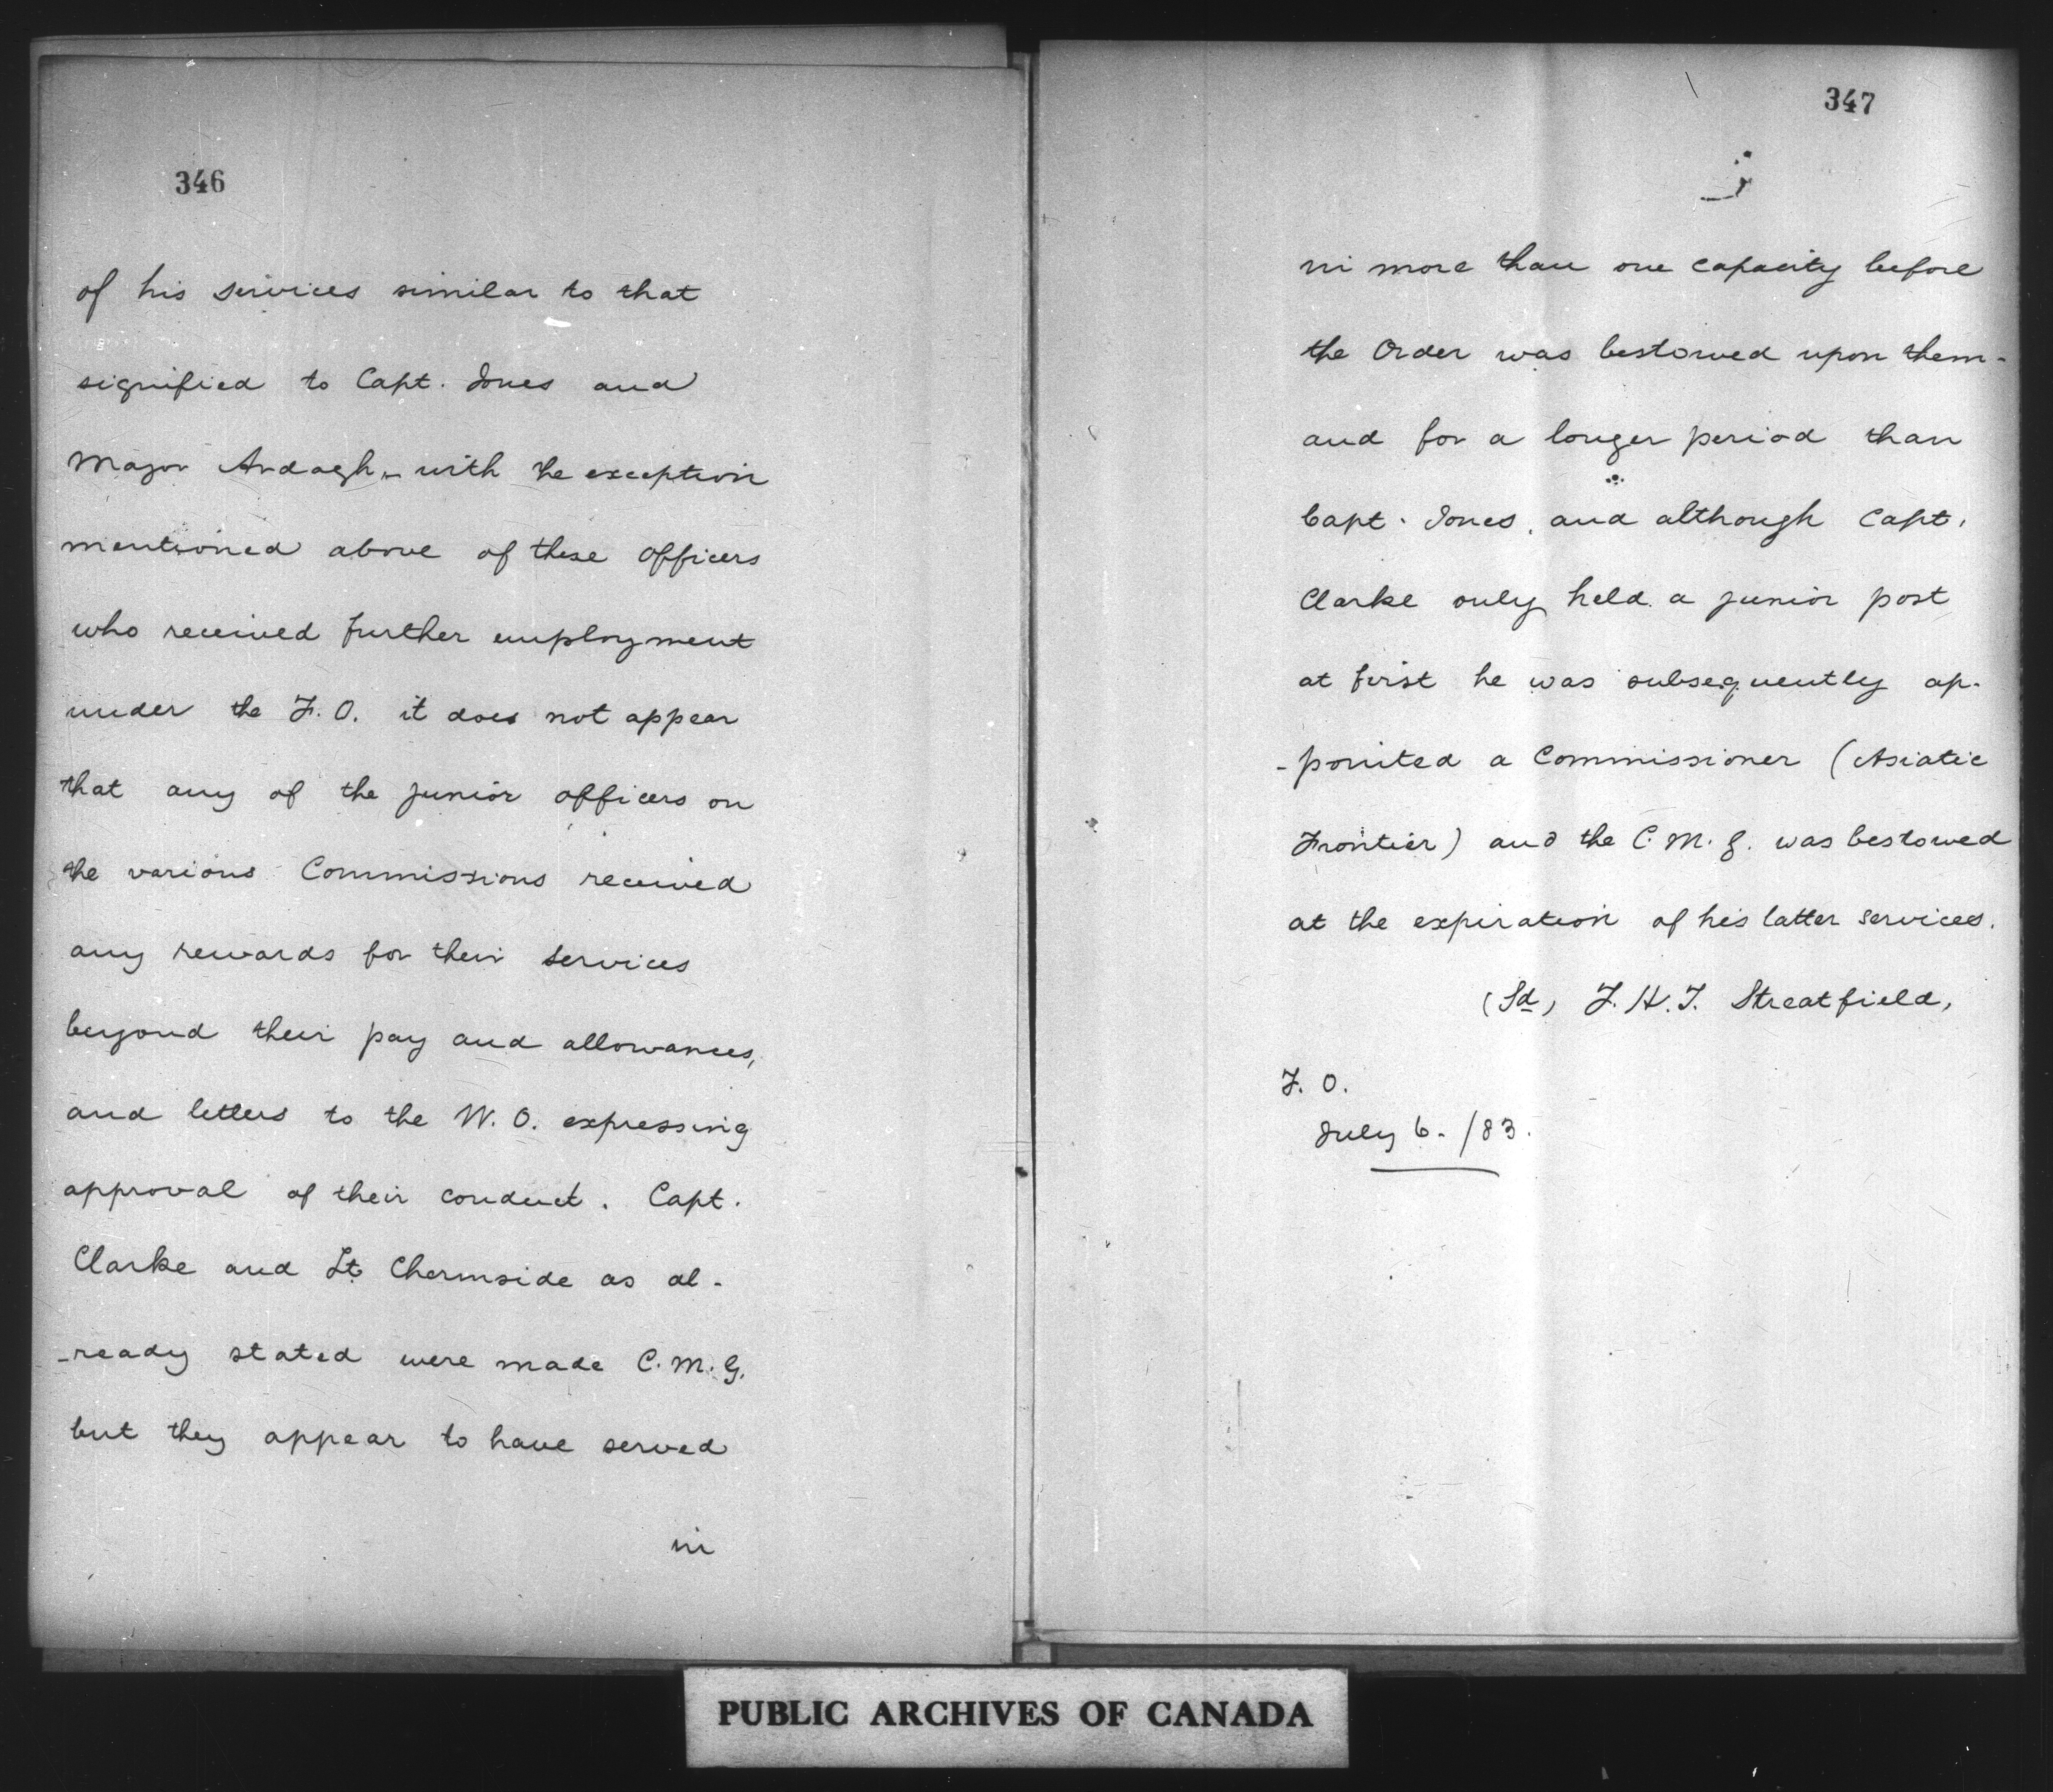 346
of his services similar to that
signified to Capt. Jones and
Major Ardagh - with the exception
mentioned above of these officers
who received further employment
under the F. O. it does not appear
that any of the junior officers on
the various Commissions received
any rewards for their services
beyond their pay and allowances,
and letters to the W. O. expressing
approval of their conduct. Capt.
Clarke and Lt Chermside as al-
-ready stated were made C. M. G.
but they appear to have served
in
347
in more than one capacity before
the Order was bestowed upon them -
and for a longer period than
Capt. Jones, and although Capt.
Clarke only held a junior post
at first he was subsequently ap-
-pointed a Commissioner (Asiatic
Frontier) and the C. M. G. was bestowed
at the expiration of his latter services.
(Sd) F. H. T. Streatfield,
F. O.
July 6. /83.
PUBLIC ARCHIVES OF CANADA